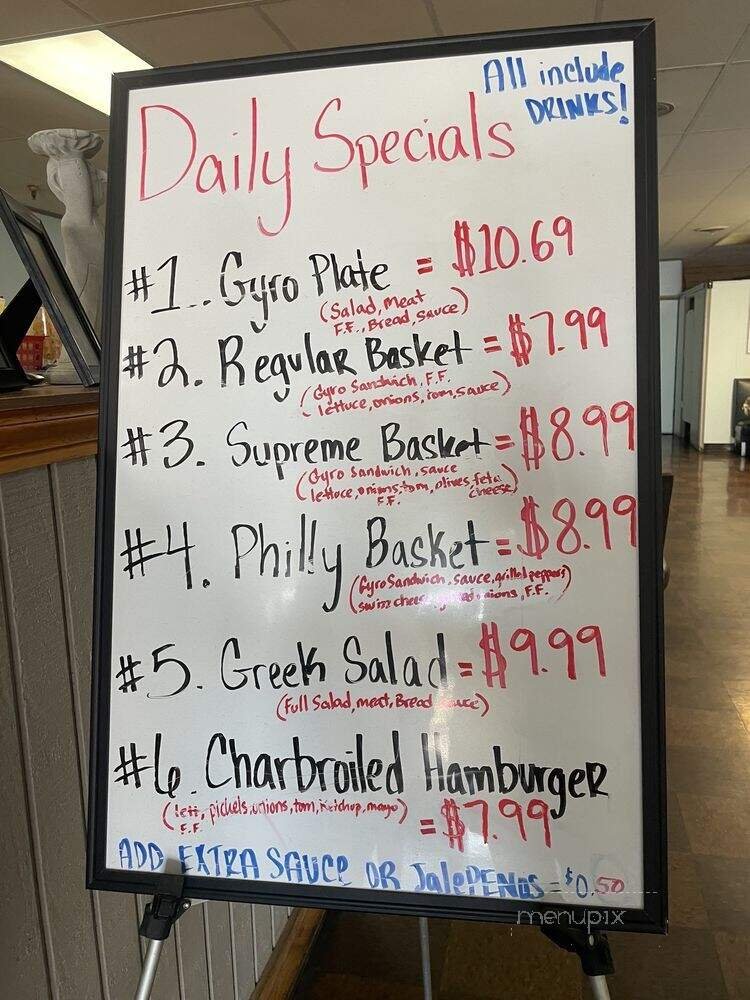 All include
DRINKS!
Daily Specials
#1.. Gyro Plate = $10.69
(Salad, Meat
F.F., Bread, Sauce)
#2. Regular Basket = $7.99
(Gyro Sandwich, F.F.
lettuce, onions, tom, sauce)
#3. Supreme Basket = $8.99
(Gyro Sandwich, sauce
lettuce, onions, tom, olives, feta
cheese)
F.F.
#4. Philly Basket = $8.99
(Gyro Sandwich, sauce, grilled peppers)
swizz cheese, onions, F.F.
#5. Greek Salad = $9.99
(Full Salad, meat, Bread sauce)
#6. Charbroiled Hamburger
(lett, pickels, onions, tom, Ketchup, mayo)
F.F.
= $7.99
ADD EXTRA SAUCE OR JalePENOS = $0.50
menupix